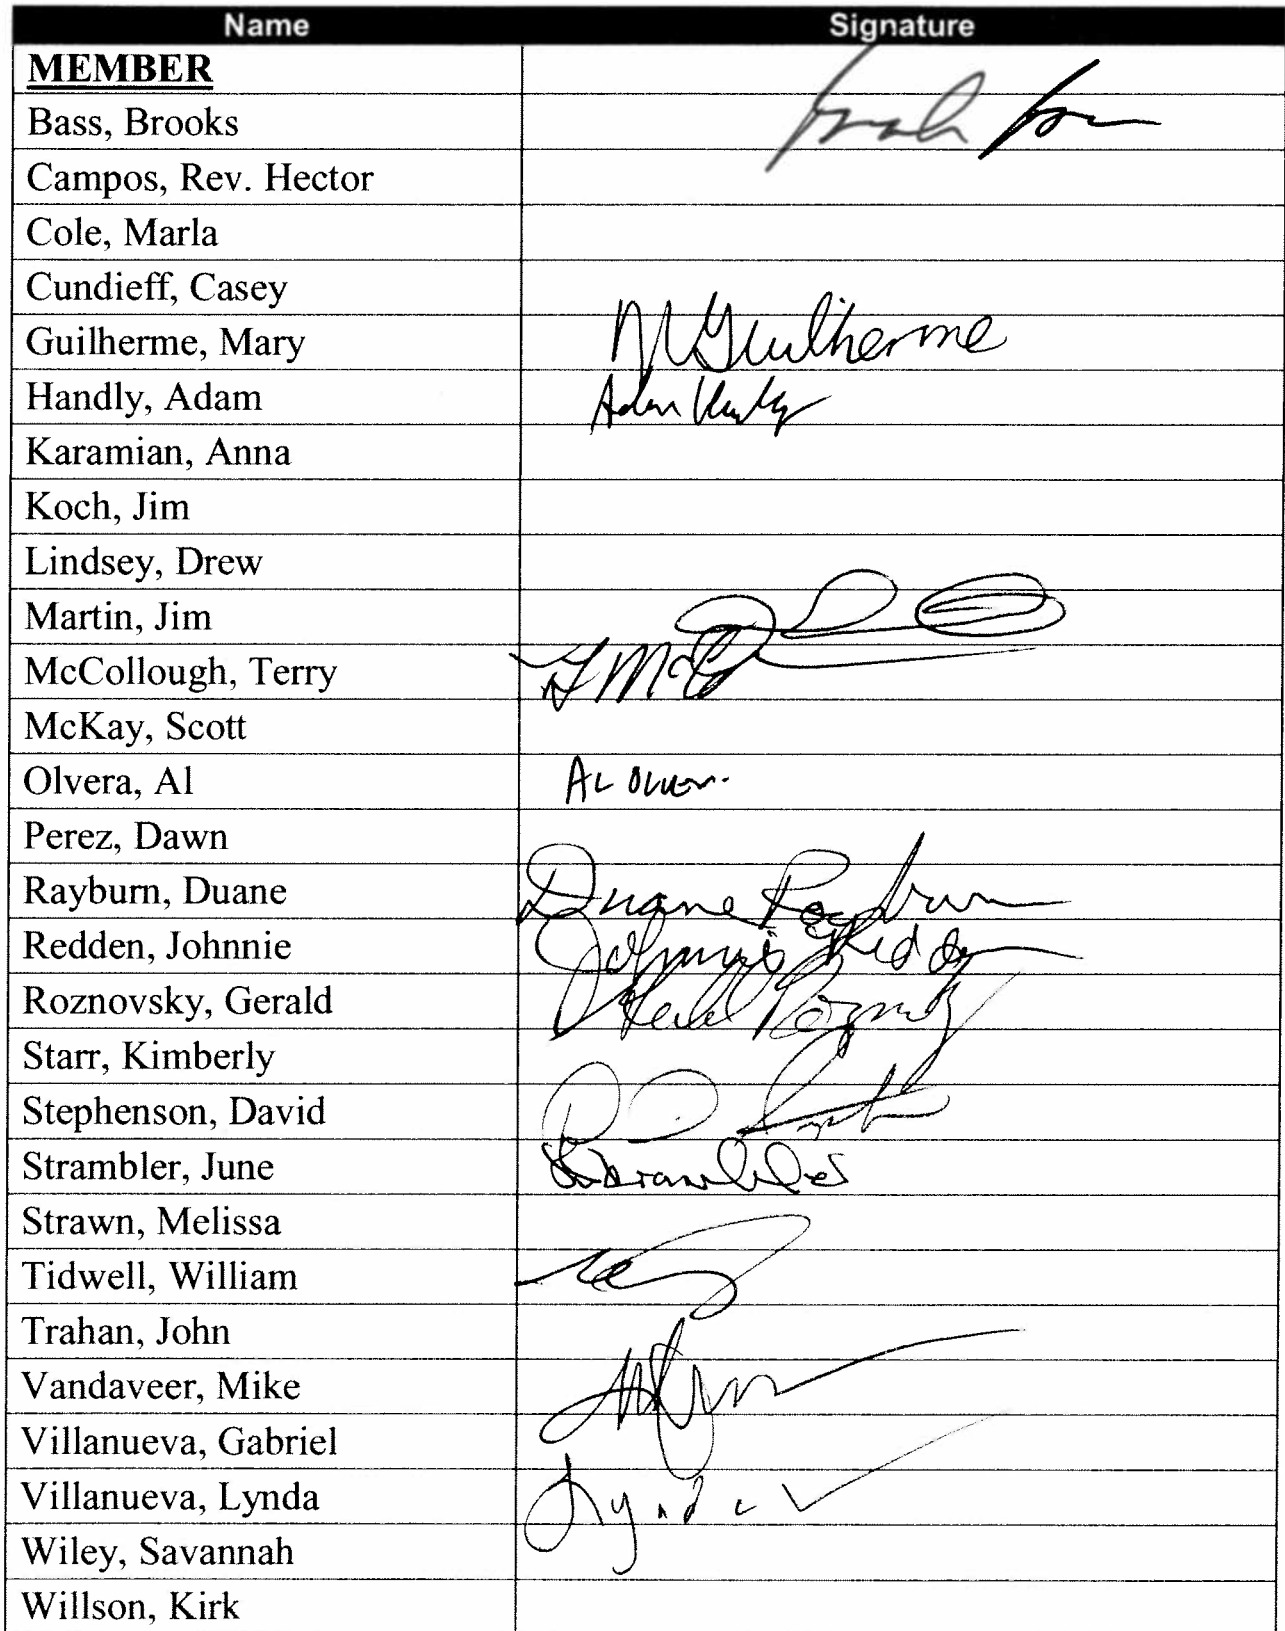 Name Signature
MEMBER
Bass, Brooks
Campos, Rev. Hector
Cole, Marla
Cundieff, Casey
Guilherme, Mary M Guilherme
Handly, Adam Adam Handly
Karamian, Anna
Koch, Jim
Lindsey, Drew
Martin, Jim
McCollough, Terry
McKay, Scott
Olvera, Al AL Olvera
Perez, Dawn
Rayburn, Duane Duane Rayburn
Redden, Johnnie Johnnie Redden
Roznovsky, Gerald
Starr, Kimberly
Stephenson, David
Strambler, June
Strawn, Melissa
Tidwell, William
Trahan, John
Vandaveer, Mike
Villanueva, Gabriel
Villanueva, Lynda
Wiley, Savannah
Willson, Kirk